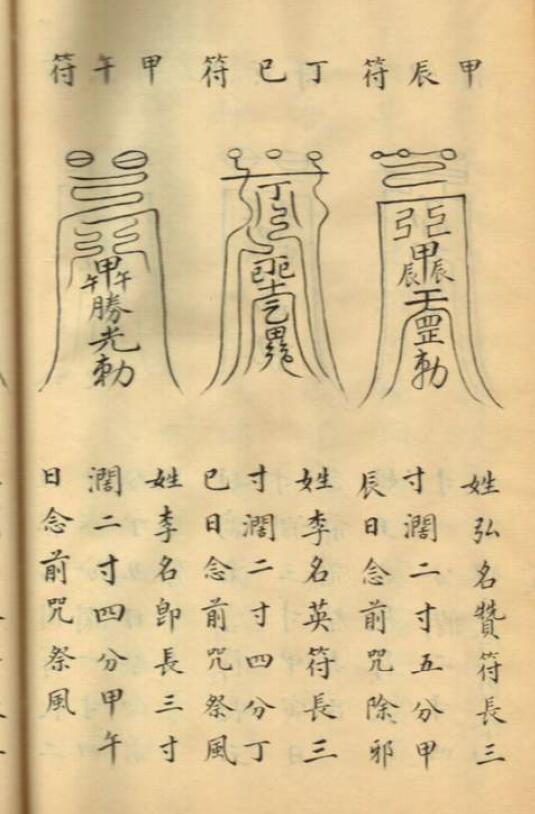 甲辰符
甲
辰辰
天
罡
勅
姓弘名贊符長三
寸濶二寸五分甲
辰日念前咒除邪
丁巳符
丁
姓李名英符長三
寸濶二寸四分丁
巳日念前咒祭風
甲午符
甲
午午
勝
光
勅
姓李名卽長三寸
濶二寸四分甲午
日念前咒祭風